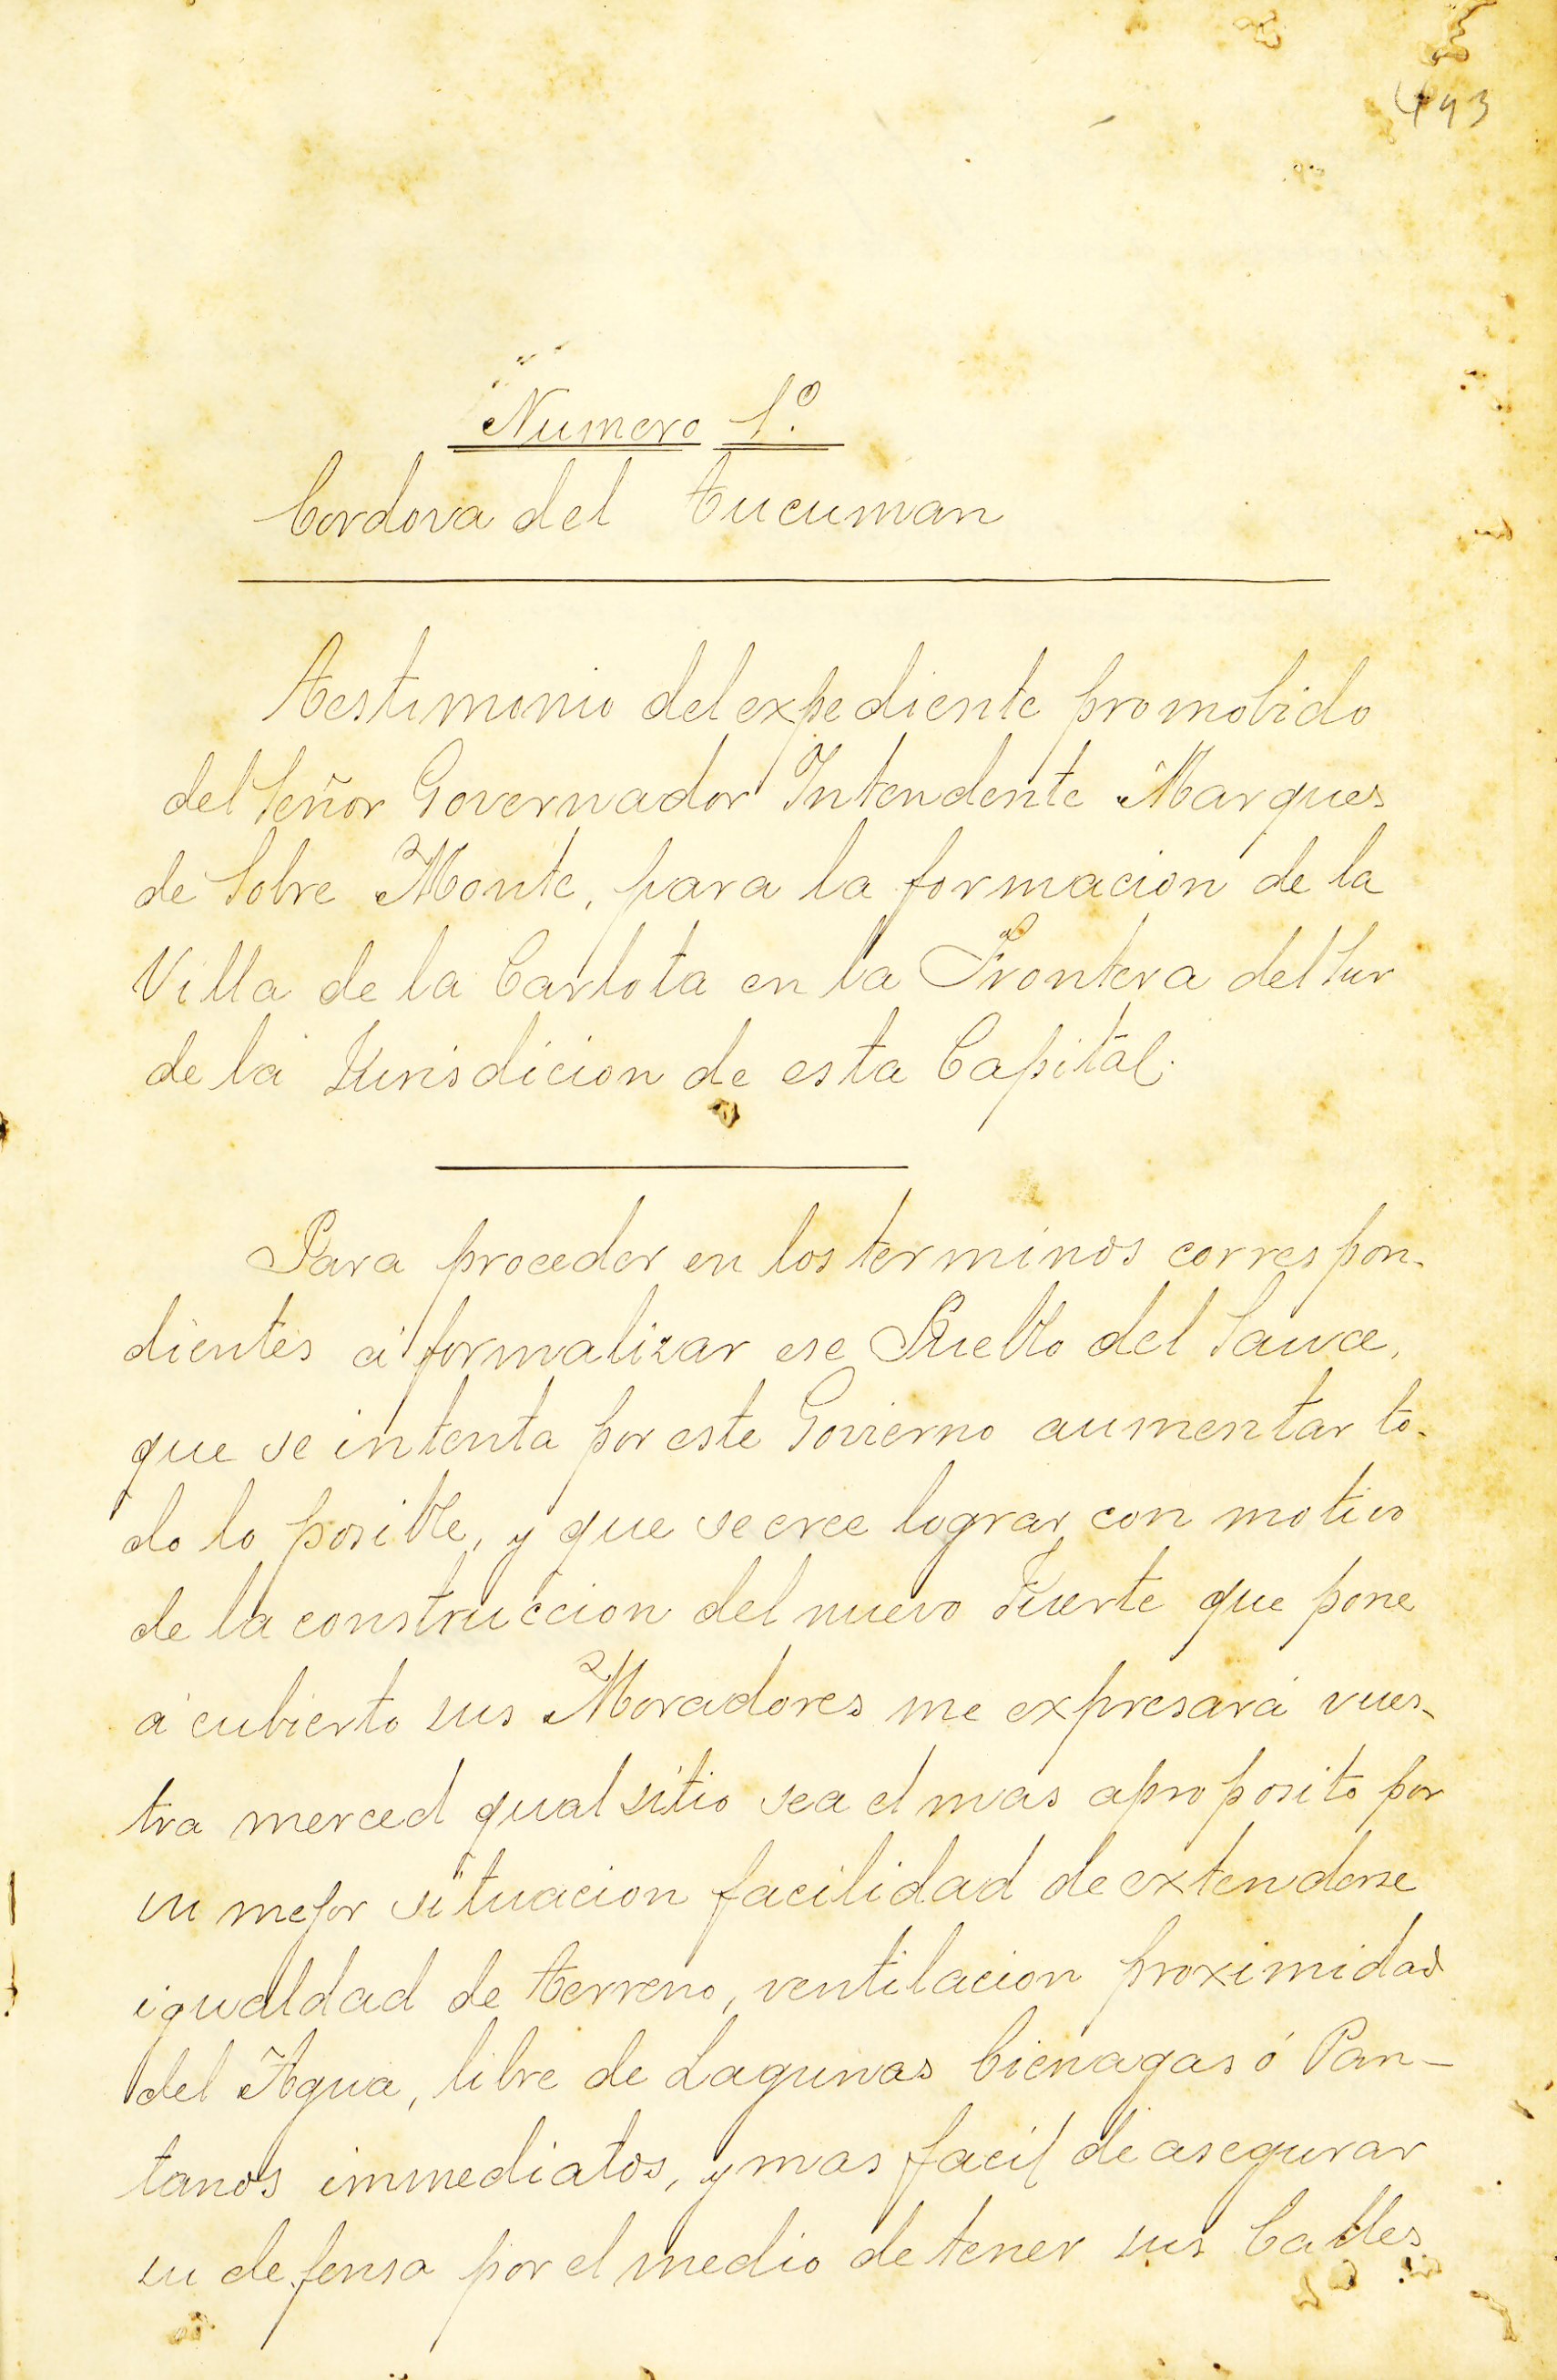 493
Numero 1.º
Cordova del Tucuman
Testimonio del expediente promobido
del Señor Governador Intendente Marques
de Sobre Monte, para la formacion de la
Villa de la Carlota en la Frontera del Sur
de la Jurisdicion de esta Capital.
Para proceder en los terminos correspon-
dientes á formalizar ese Pueblo del Sauce,
que se intenta por este Govierno aumentar to-
do lo posible, y que se cree lograr con motivo
de la construccion del nuevo Fuerte que pone
á cubierto sus Moradores me expresará vues-
tra merced qual sitio sea el mas aproposito por
su mejor situacion facilidad de extenderse
igualdad de terreno, ventilacion proximidad
del Agua, libre de Lagunas Cienagas ó Pan-
tanos immediatos, y mas facil de asegurar
su defensa por el medio de tener sus Calles